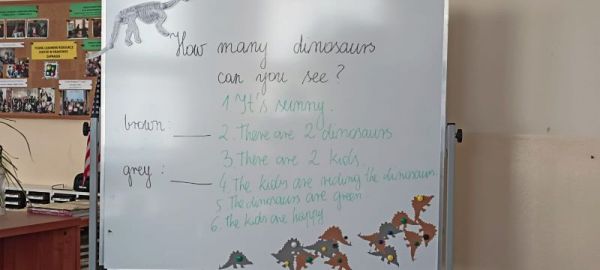 How many dinosaurs
can you see?
1 It's sunny.
brown: ____ 2. There are 2 dinosaurs
3. There are 2 kids.
grey: ____ 4. The kids are riding the dinosaurs.
5 The dinosaurs are green.
6. the kids are happy